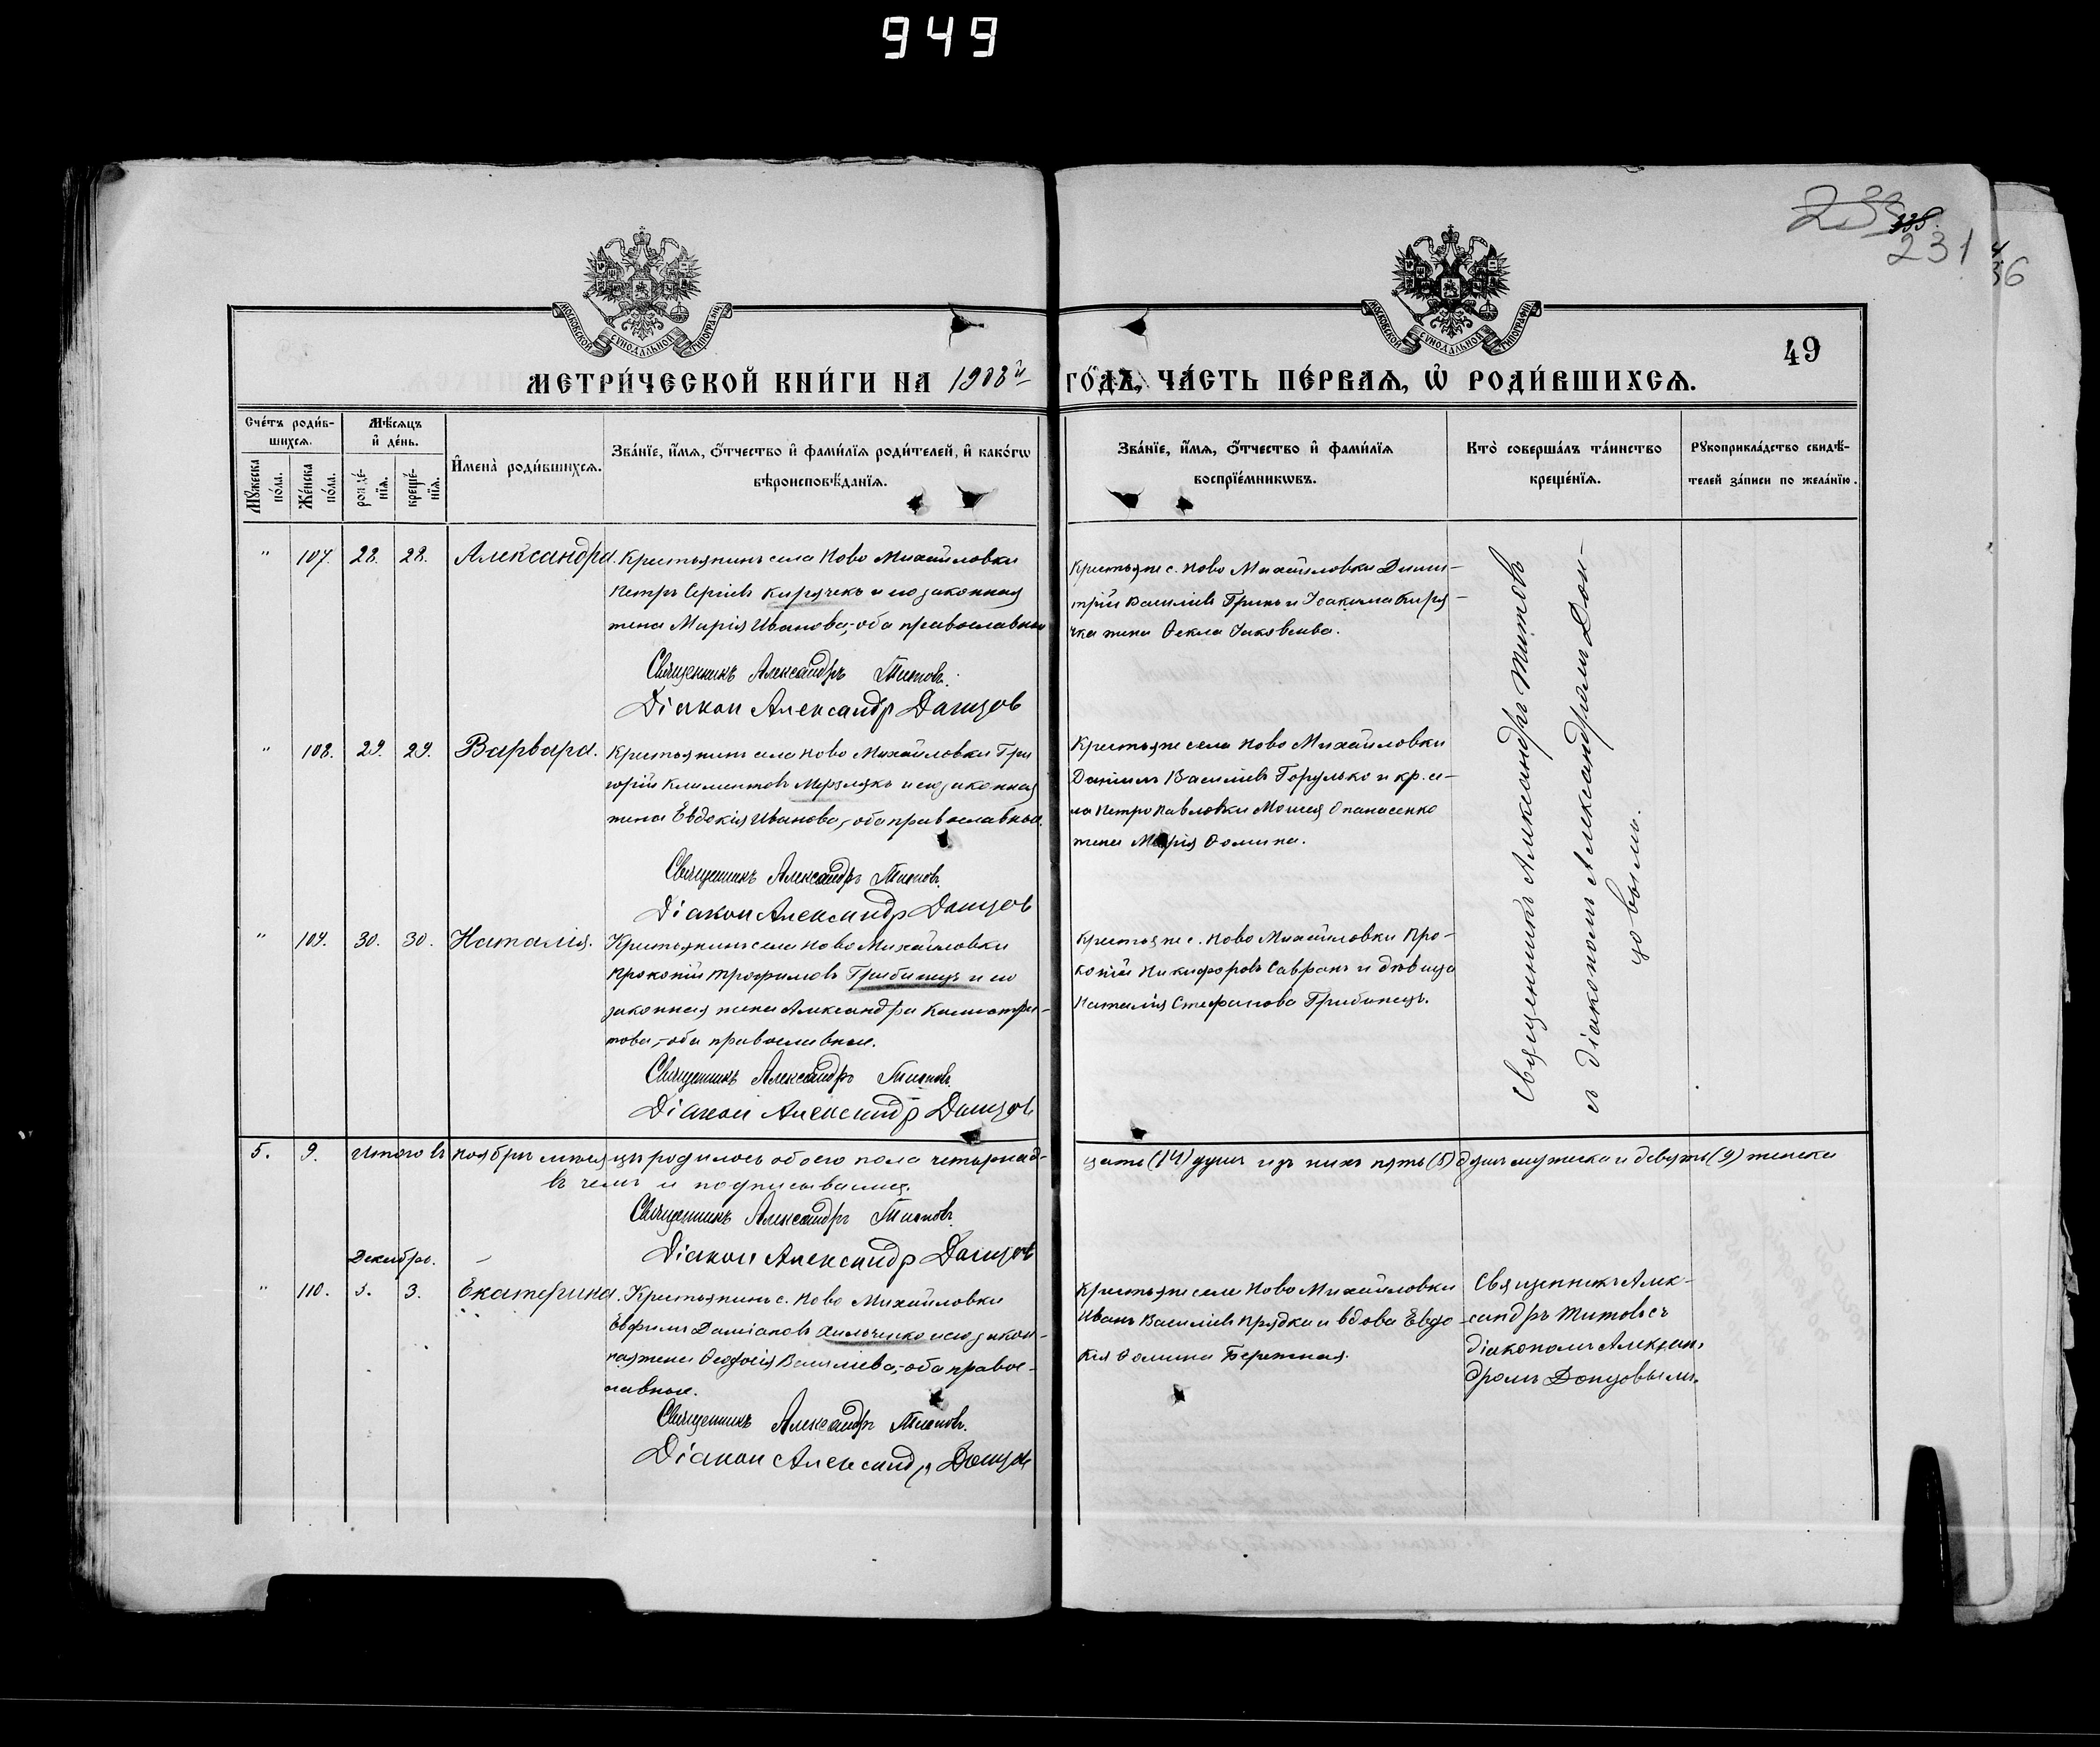 949
231
36
МОСКОВСКОЙ СѴНОДАЛЬНОЙ ТИПОГРАФІИ
МОСКОВСКОЙ СѴНОДАЛЬНОЙ ТИПОГРАФІИ
49
МЕТРИ́ЧЕСКОЙ КНИ́ГИ НА 1908й ГО́ДЪ, ЧА́СТЬ ПЕ́РВАѦ, Ѡ҆ РОДИ́ВШИХСѦ.
Сче́тъ роди́в-
шихсѧ.
Мꙋ́жеска по́ла.
Же́нска по́ла.
Мѣ́сѧцъ
и҆ де́нь.
рожде́-
нїѧ.
креще́-
нїѧ.
И҆мена̀ роди́вшихсѧ.
Зва́нїе, и҆́мѧ, ѻ҆́тчество и҆ фами́лїѧ роди́телей, и҆ како́гѡ
вѣроисповѣ́данїѧ.
Зва́нїе, и҆́мѧ, ѻ҆́тчество и҆ фами́лїѧ
воспрїе́мникѡвъ.
Кто̀ соверша́лъ та́инство
креще́нїѧ.
Рꙋкоприкла́дство свидѣ́-
телей за́писи по жела́нїю.
" 107. 28. 28. Александра. Крестьянинъ села Ново Михайловки
Петръ Сергіевъ Кирячекъ и его законная
жена Марія Иванова,-оба православные
Священникъ Александръ Титовъ.
Діакон Александр Данцов
Крестьяне с. Ново Михайловки Дими-
трій Василіевъ Гринь и Іоакима Киря-
чка жена Ѳекла Іаковлева.
Священникъ Александръ Титовъ
съ діакономъ Александромъ Дон-
цовымъ.
" 108. 29. 29. Варвара. Крестьянинъ села Ново Михайловки Гри
горій Климентовъ Мерзлякъ и его законная
жена Евдокія Иванова,-оба православные.
Священникъ Александръ Титовъ.
Діакон Александр Данцов
Крестьяне села Ново Михайловки
Даніилъ Василіевъ Горулько и кр. се-
ла Петропавловки Моисея Опанасенко
жена Марія Ѳомина.
" 109. 30. 30. Наталія. Крестьянинъ села Ново Михайловки
Прокопій Трофимовъ Грибинецъ и его
законная жена Александра Калистра-
това,-оба православные.
Священникъ Александръ Титовъ.
Діакон Александр Данцов
Крестьяне с. Ново Михайловки Про-
копій Никифоровъ Савранъ и дѣвица
Наталія Стефанова Грибинецъ.
5. 9. Итого въ ноябрѣ мѣсяцѣ родилось обоего пола четырнад-
цать (14) душъ изъ нихъ пять (5) душъ мужеска и девять (9) женска
въ чемъ и подписываемся.
Священникъ Александръ Титовъ.
Діакон Александр Данцов
Декабрь.
" 110. 3. 3. Екатерина. Крестьянинъ с. Ново Михайловки
Евфимъ Даміановъ Хильченко и его закон-
ная жена Ѳеодосія Василіева,-оба право-
славные.
Священникъ Александръ Титовъ.
Діакон Александр Данцов
Крестьяне села Ново Михайловки
Иванъ Василіевъ Прядка и вдова Евдо-
кія Ѳомина Бережная.
Священникъ Алек-
сандръ Титовъ съ
діакономъ Алексан-
дромъ Донцовымъ.